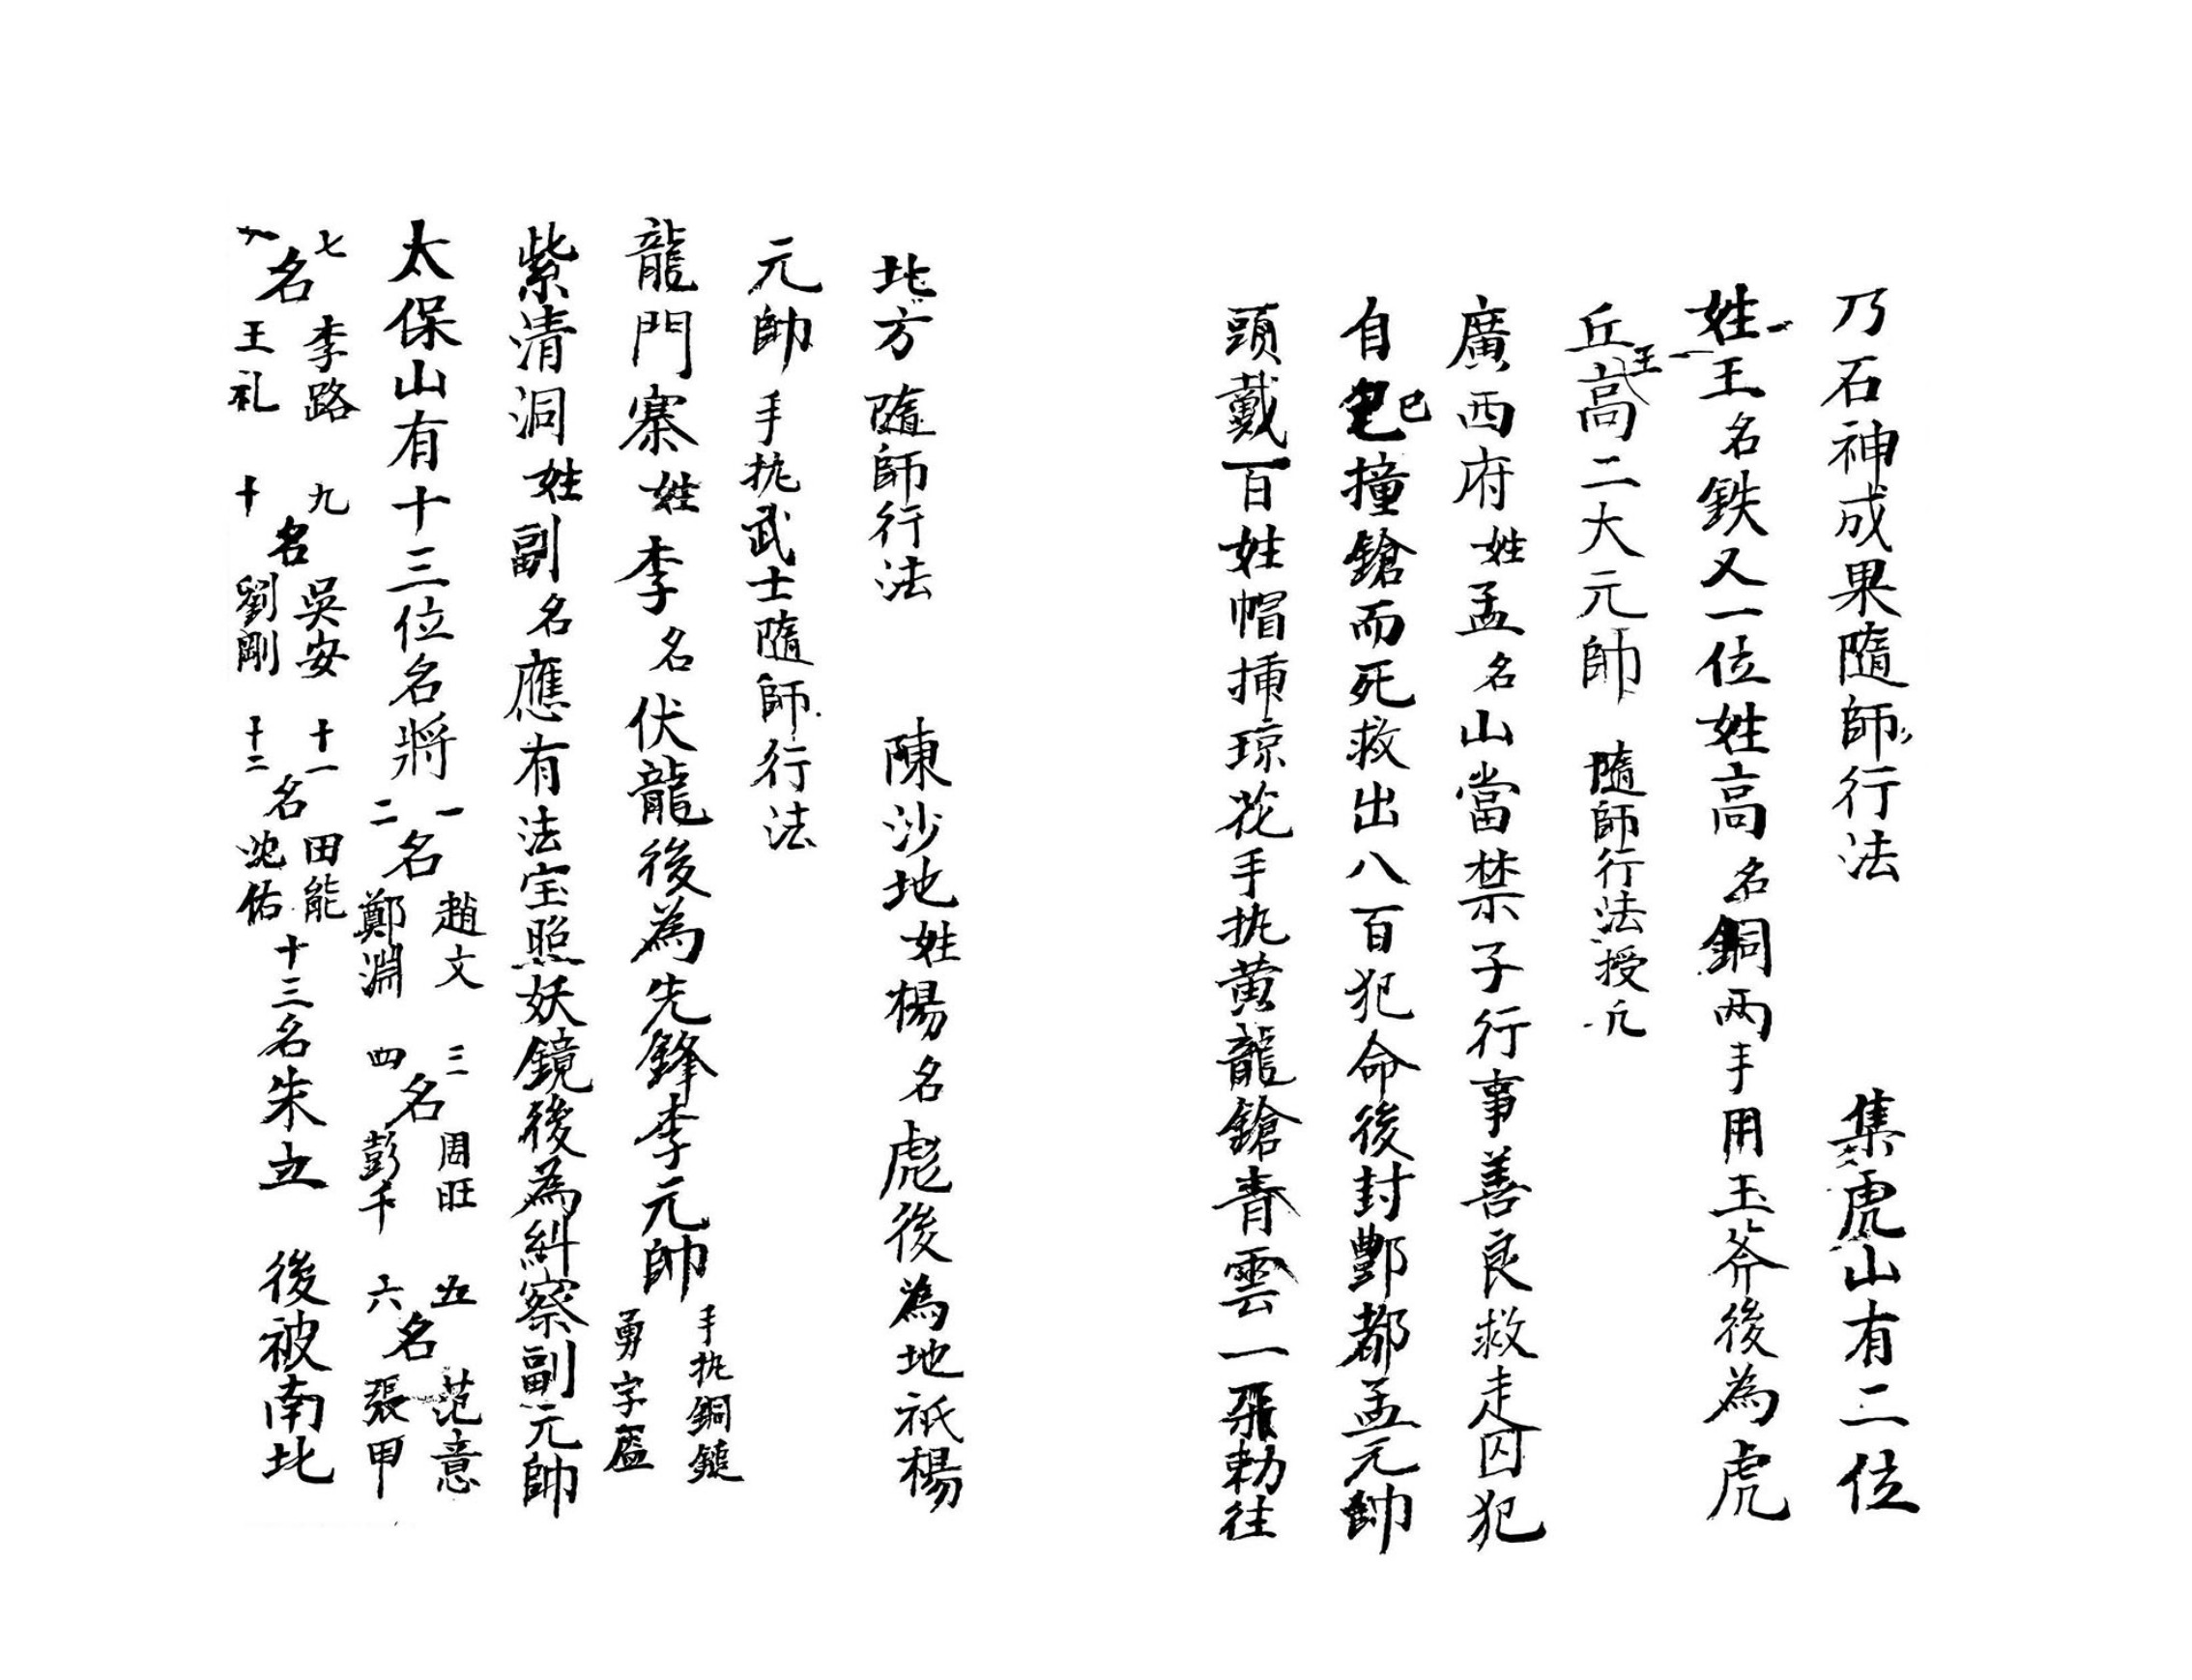 乃石神成果隨師行法　集虎山有二位
姓王名鉄又一位姓高名銅两手用玉斧後為虎
丘王高二大元帥　隨師行法授
廣西府姓孟名山當禁子行事善良救走囚犯
自己撞鎗而死救出八百犯命後封酆都孟元帥
頭戴百姓帽挿琼花手执黄龍鎗青雲一朵勅往
北方隨師行法　陳沙地姓楊名彪後為地祇楊
元帥手执武士隨師行法
龍門寨姓李名伏龍後為先鋒李元帥手执銅鎚勇字盔
紫清洞姓副名應有法宝照妖鏡後為糾察副元帥
太保山有十三位名將一名趙文二名鄭淵三名周旺四名彭千五名范意六名張甲
七名李路八名王礼九名吳安十名劉剛十一名田能十二名沈佑十三名朱立　後被南北